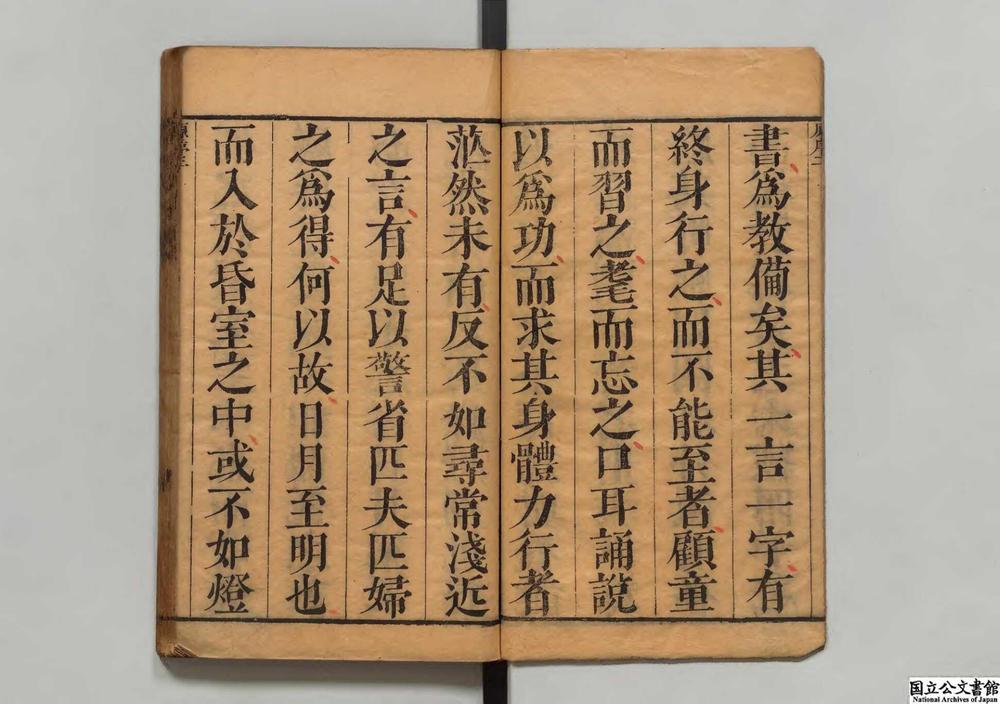 書為教備矣其一言一字有
終身行之而不能至者顧童
而習之耄而忘之口耳誦說
以為功而求其身體力行者
茫然未有反不如尋常淺近
之言有足以警省匹夫匹婦
之為得何以故日月至明也
而入於昏室之中或不如燈
国立公文書館
National Archives of Japan